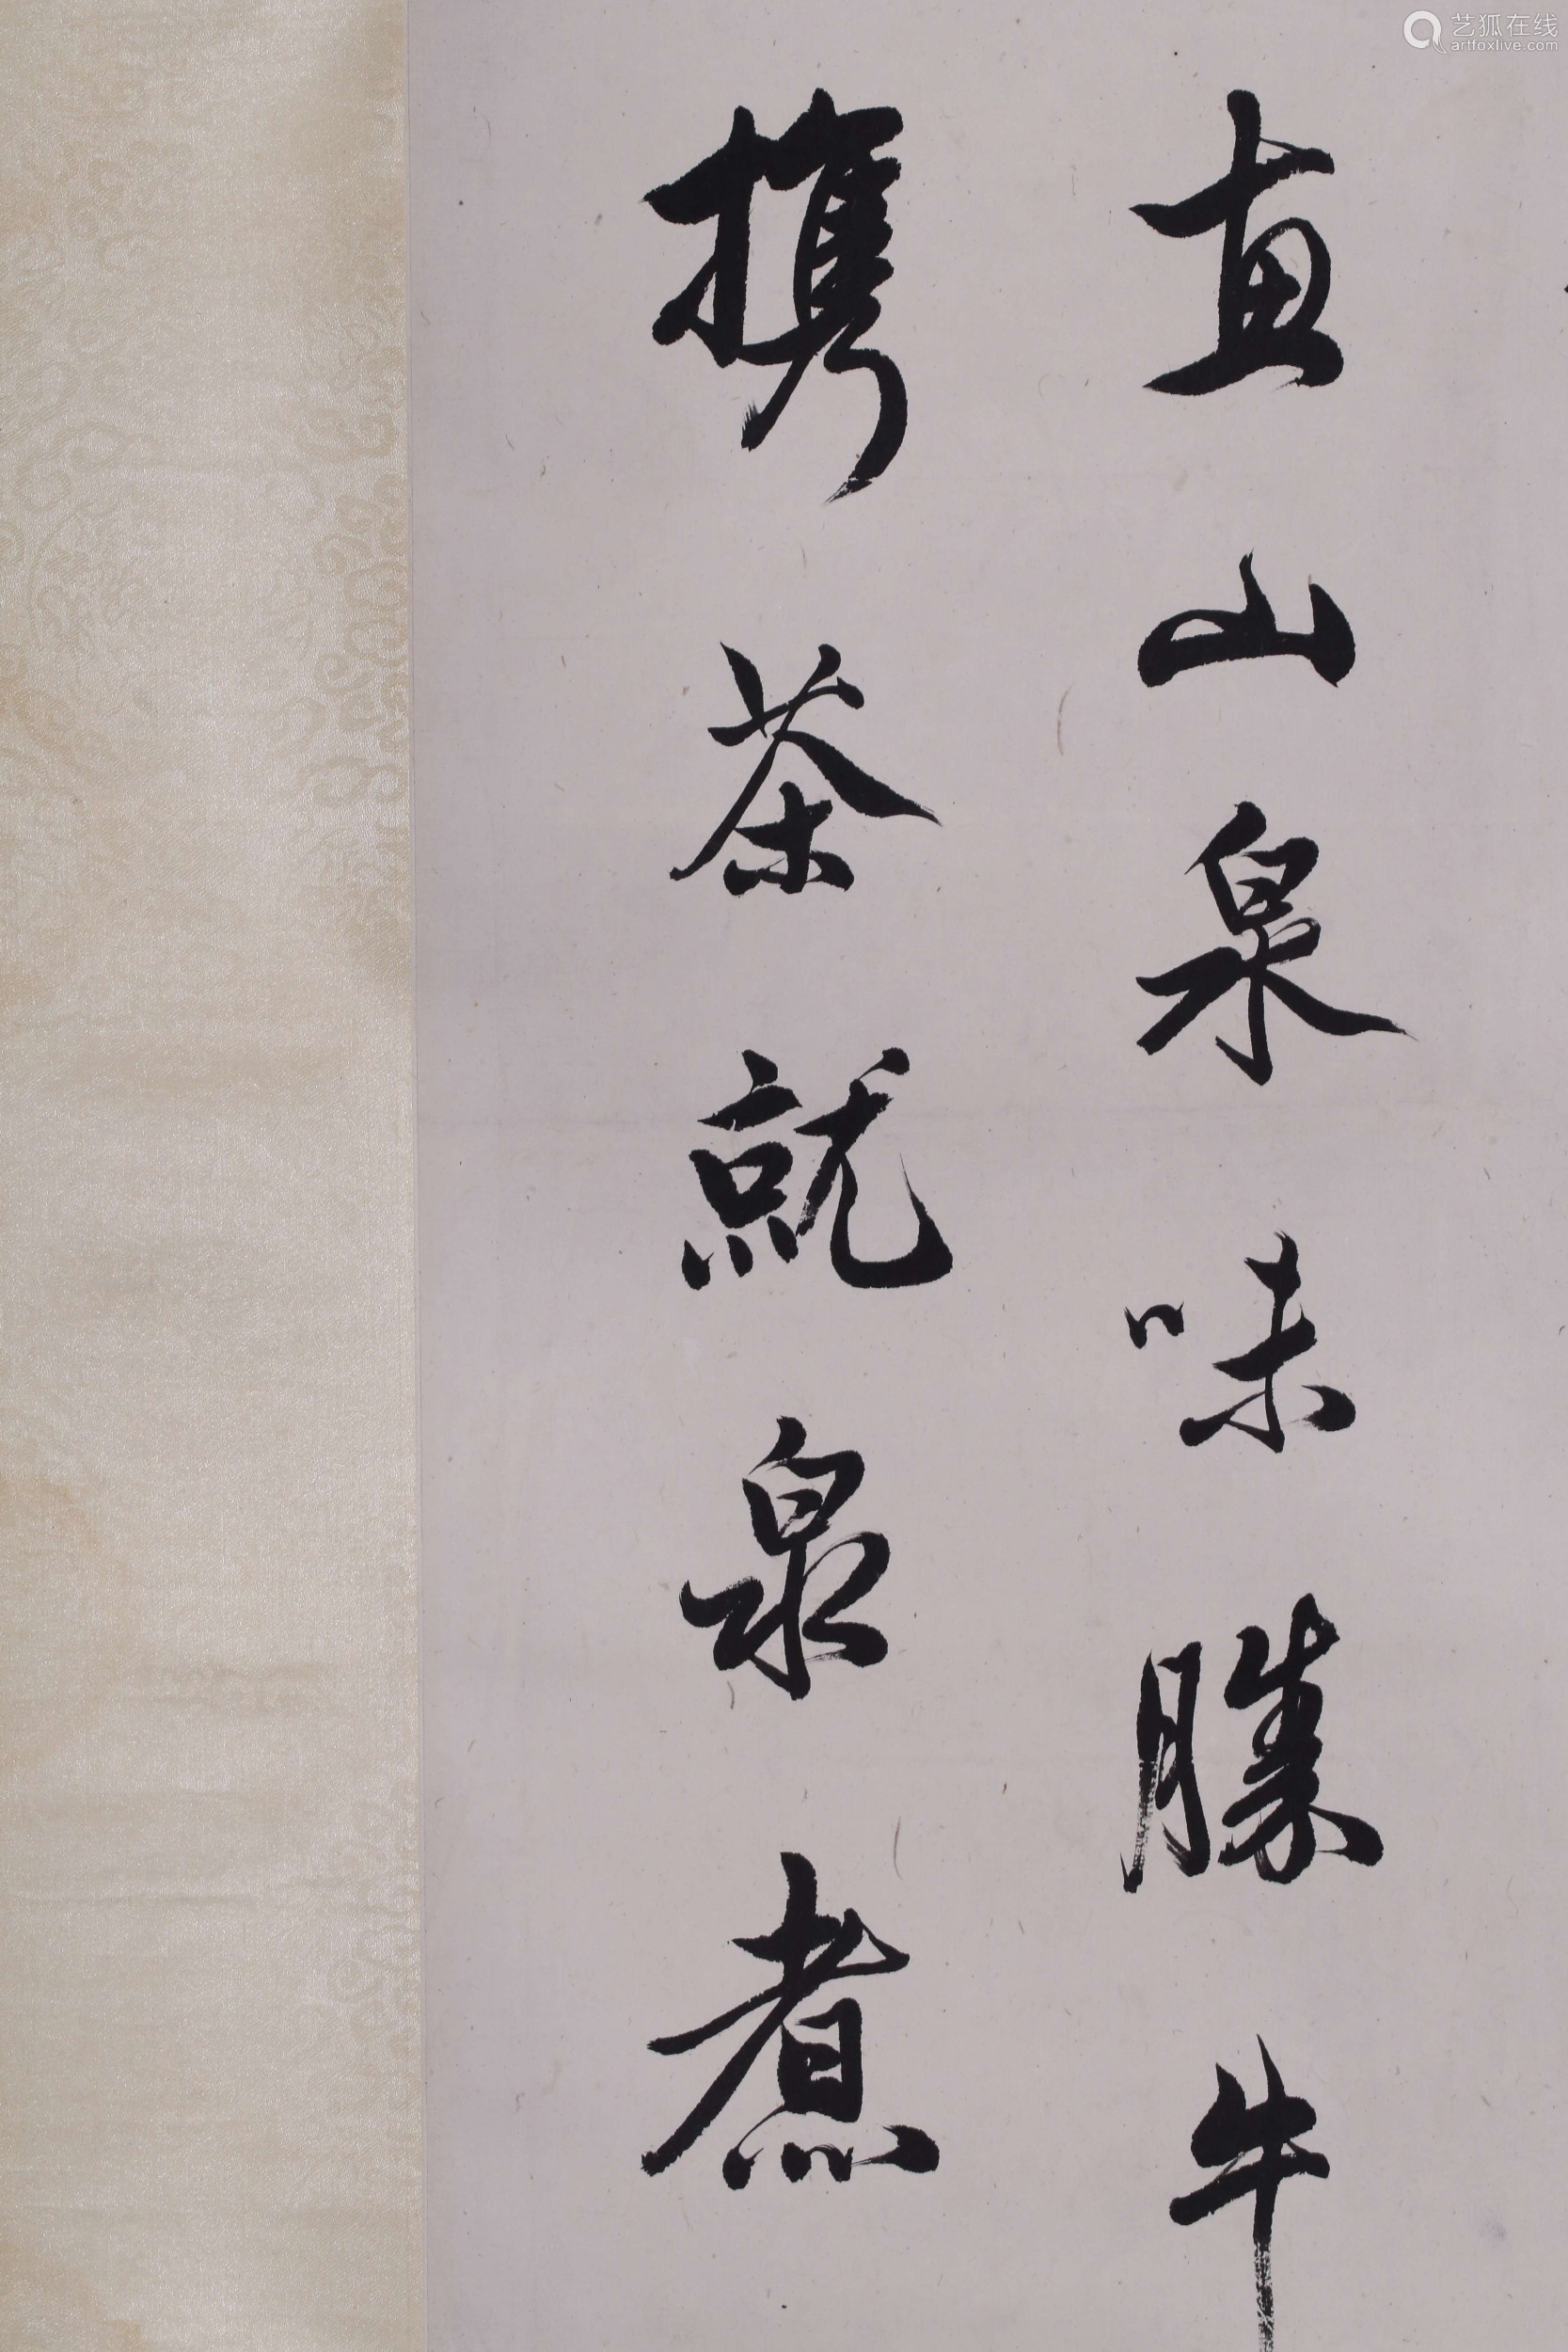 直山泉味勝牛
携茶就泉煮
艺狐在线
artfoxlive.com